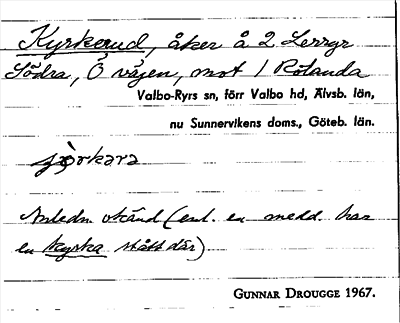 Kyrkerud, åker å 2 Lerrgr
Södra, Ö vägen, mot 1 Rölanda
Valbo-Ryrs sn, förr Valbo hd, Älvsb. län,
nu Sunnervikens doms., Göteb. län.
Anledn okänd (enl. en medd. har
en kyrka stått där)
GUNNAR DROUGGE 1967.